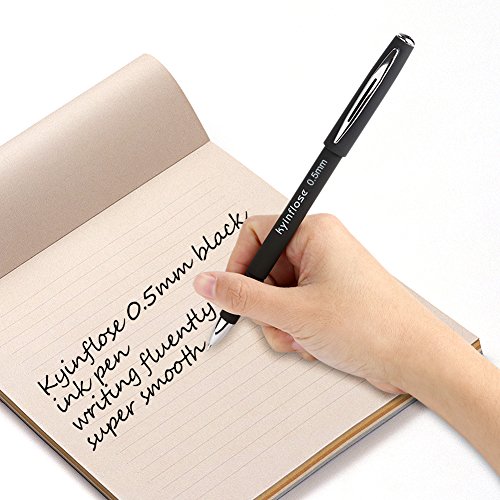 Kyinflose 0.5mm black
ink pen
writing fluently
super smooth
kyinflose 0.5mm